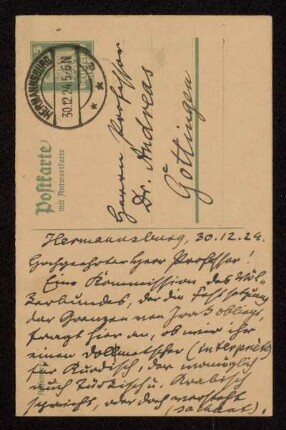 HERMANNSBURG
30.12.24. 5-6 N
Postkarte
mit Antwortkarte
Herrn Professor
Dr. Andreas
Göttingen
Hermannsburg, 30.12.24.
Hochgeehrter Herr Professor!
Eine Kommission des Völ-
kerbundes, der die Festsetzung
der Grenzen von Iraq obliegt,
fragt hier an, ob wir ihr
einen Dolmetscher (interprète)
für Kurdisch, der womöglich
auch Türkisch u. Arabisch
spricht, oder doch versteht
(sachant).